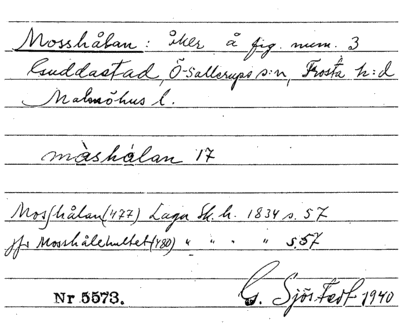 Mosshålan: åker å fig. num. 3
Guddastad, Ö-Sallerups s:n, Frosta h:d
Malmöhus l.
måshålan 17
Mosshålan (477) Laga Sk. h. 1834 s. 57
jfr Mosshålehultet (480) " " " " s. 57
Nr 5573. G. Sjöstedt 1940